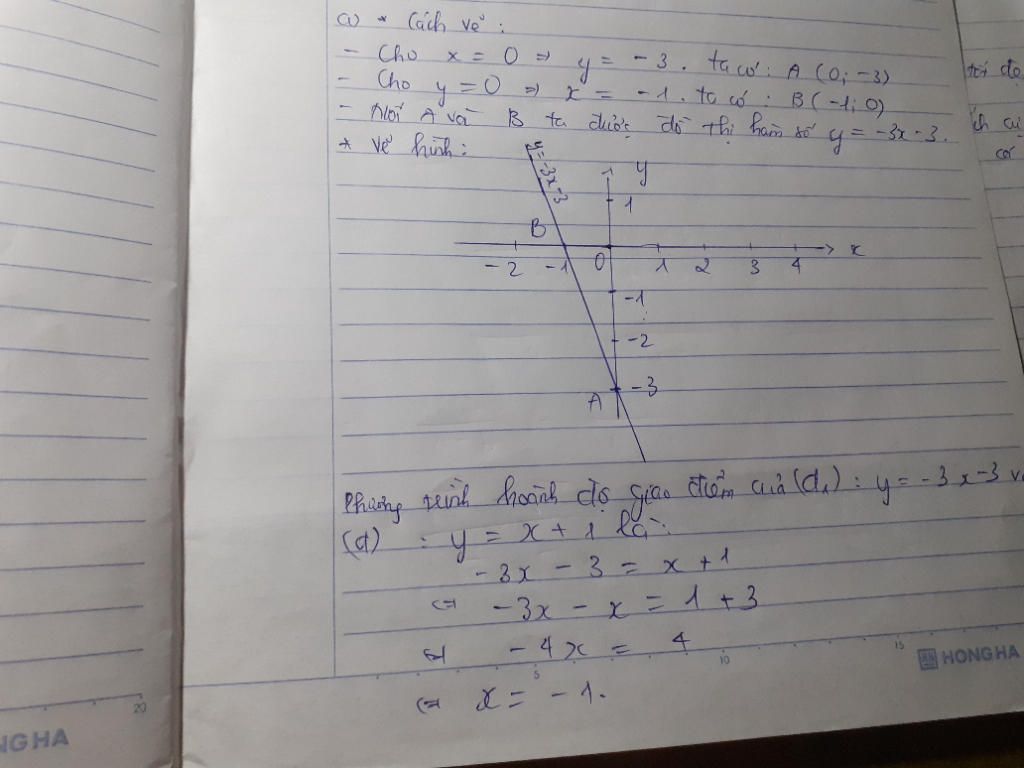 a) * Cách vẽ :
- Cho x = 0 ⇒ y = -3. ta có : A (0; -3)
- Cho y = 0 ⇒ x = -1. ta có : B (-1; 0)
- Nối A và B ta được đồ thị hàm số y = -3x - 3.
* Vẽ hình :
y = -3x - 3
y
1
B
-2 -1 0 1 2 3 4 x
-1
-2
A -3
Phương trình hoành độ giao điểm của (d₁) : y = -3x - 3 và
(d) : y = x + 1 là :
-3x - 3 = x + 1
⇔ -3x - x = 1 + 3
⇔ -4x = 4
⇔ x = -1.
5 10 15
HONG HA
20
NG HA
tọi độ
ích củ
có